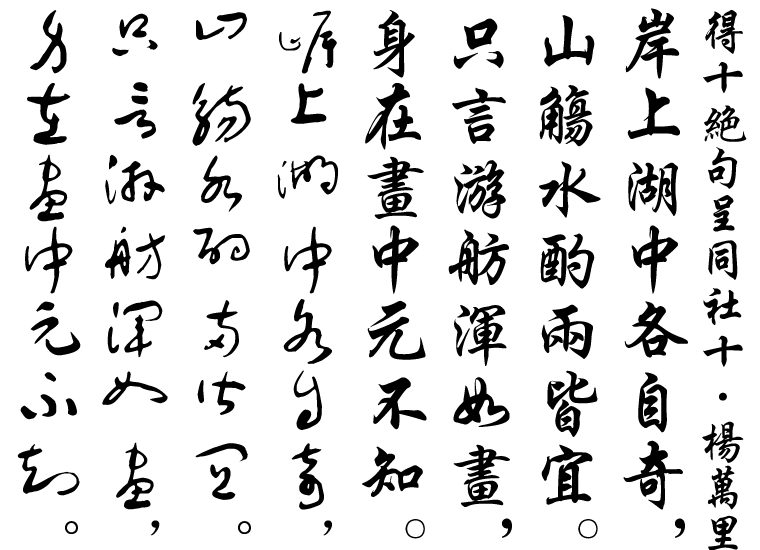 得十絕句呈同社十·楊萬里
岸上湖中各自奇，
山觴水酌兩皆宜。
只言游舫渾如畫，
身在畫中元不知。
岸上湖中各自奇，
山觴水酌兩皆宜。
只言游舫渾如畫，
身在畫中元不知。